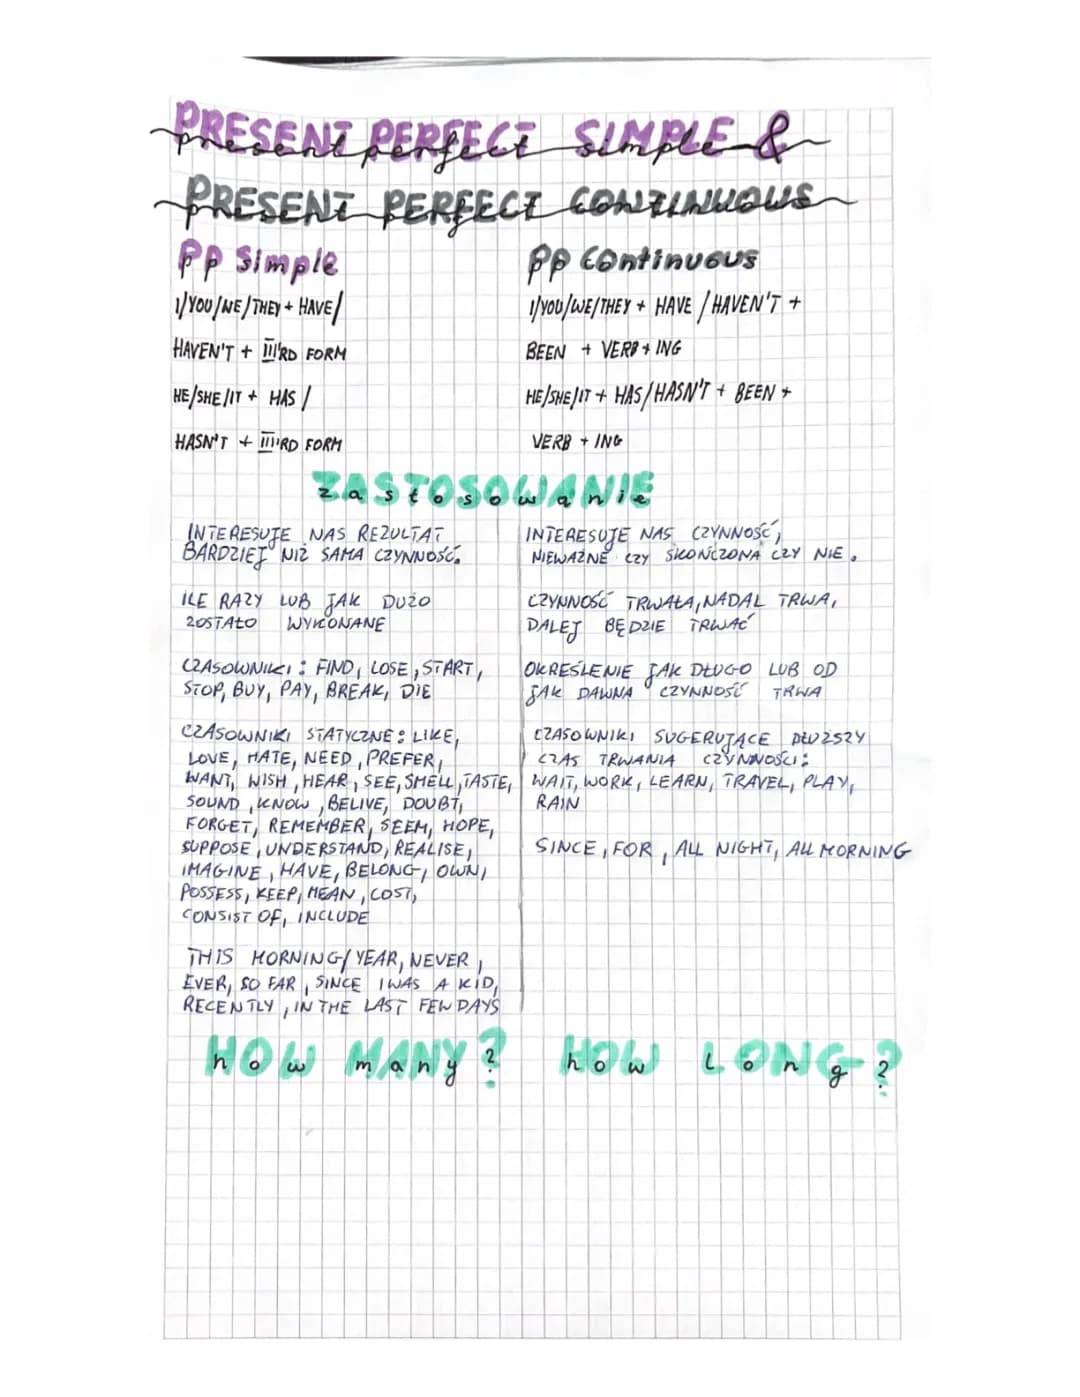 PRESENT PERFECT SIMPLE &
present perfect simple
PRESENT PERFECT CONTINUOUS
present perfect continuous
PP Simple
I/YOU/WE/THEY + HAVE/
HAVEN'T + III'RD FORM
HE/SHE/IT + HAS /
HASN'T + III'RD FORM
PP Continuous
I/YOU/WE/THEY + HAVE / HAVEN'T +
BEEN + VERB + ING
HE/SHE/IT + HAS/HASN'T + BEEN +
VERB + ING
ZASTOSOWANIE
zastosowanie
INTERESUJE NAS REZULTAT
BARDZIEJ NIŻ SAMA CZYNNOŚĆ.
ILE RAZY LUB JAK DUŻO
ZOSTAŁO WYKONANE
CZASOWNIKI: FIND, LOSE, START,
STOP, BUY, PAY, BREAK, DIE
CZASOWNIKI STATYCZNE: LIKE,
LOVE, HATE, NEED, PREFER,
WANT, WISH, HEAR, SEE, SMELL, TASTE,
SOUND, KNOW, BELIVE, DOUBT,
FORGET, REMEMBER, SEEM, HOPE,
SUPPOSE, UNDERSTAND, REALISE,
IMAGINE, HAVE, BELONG, OWN,
POSSESS, KEEP, MEAN, COST,
CONSIST OF, INCLUDE
THIS MORNING/YEAR, NEVER,
EVER, SO FAR, SINCE I WAS A KID,
RECENTLY, IN THE LAST FEW DAYS
INTERESUJE NAS CZYNNOŚĆ,
NIEWAŻNE CZY SKOŃCZONA CZY NIE.
CZYNNOŚĆ TRWAŁA, NADAL TRWA,
DALEJ BĘDZIE TRWAĆ
OKREŚLENIE JAK DŁUGO LUB OD
JAK DAWNA CZYNNOŚĆ TRWA
CZASOWNIKI SUGERUJĄCE DŁUŻSZY
CZAS TRWANIA CZYNNOŚCI:
WAIT, WORK, LEARN, TRAVEL, PLAY,
RAIN
SINCE, FOR, ALL NIGHT, ALL MORNING
HOW MANY?
how many?
HOW LONG?
how long?